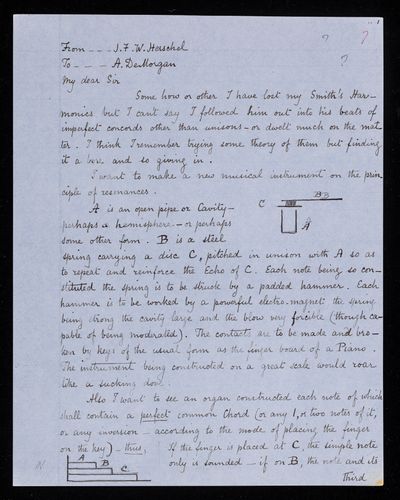 " 1
? ?
?
From - - - J. F. W. Herschel
To - - - A. DeMorgan
My dear Sir
Some how or other I have lost my Smith's Har-
monics but I can't say I followed him out into his beats of
imperfect concords other than unisons - or dwelt much on the mat
ter. I think I remember trying some theory of them but finding
it a bore and so giving in.
I want to make a new musical instrument on the prin
ciple of resonances.
A is an open pipe or Cavity -
perhaps a hemisphere - or perhaps
some other form. B is a steel
C BB
A
spring carrying a disc C, pitched in unison with A so as
to repeat and reinforce the Echo of C. Each note being so con-
stituted the spring is to be struck by a padded hammer. Each
hammer is to be worked by a powerful electro-magnet the spring
being strong the cavity large and the blow very forcible (though ca-
pable of being moderated). The contacts are to be made and bro-
ken by keys of the usual form as the finger board of a Piano.
The instrument being constructed on a great scale would roar
like a sucking dove.
Also I want to see an organ constructed each note of which
shall contain a perfect common Chord (or any 1, or two notes of it,
or any inversion - according to the mode of placing the finger
on the key) - thus, If the finger is placed at C, the simple note
A B C
only is sounded - if on B, the note and its
third